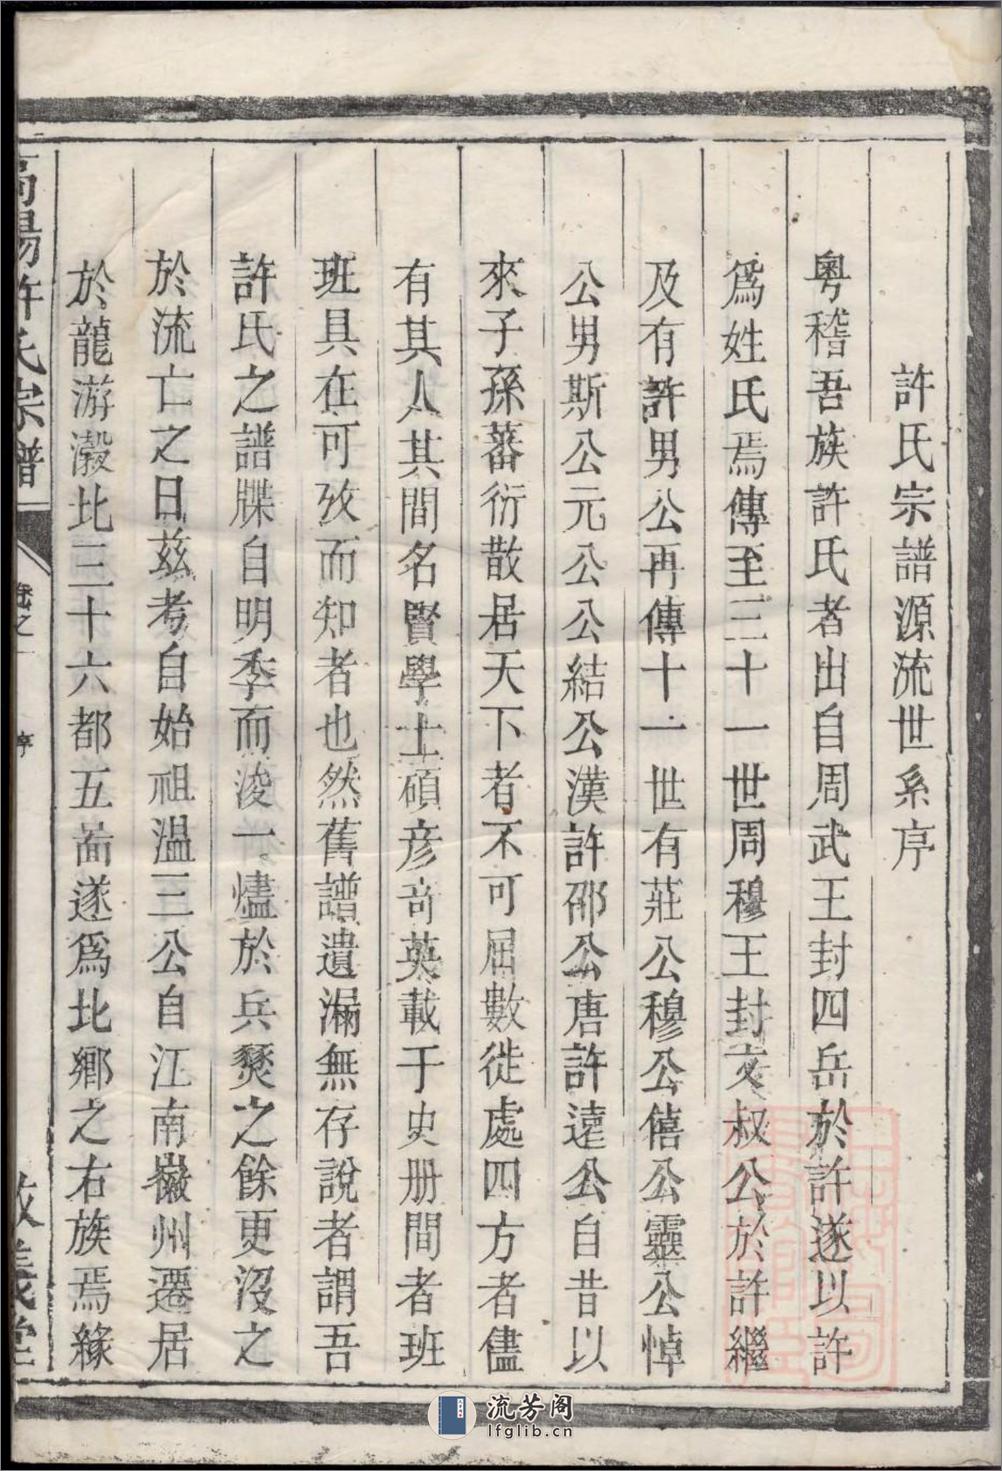 許氏宗譜源流世系序
粵稽吾族許氏者出自周武王封四岳於許遂以許
為姓氏焉傳至三十一世周穆王封文叔公於許繼
及有許男公再傳十一世有莊公穆公僖公靈公悼
公男斯公元公公結公漢許邵公唐許遠公自昔以
來子孫蕃衍散居天下者不可屈數徙處四方者儘
有其人其間名賢學士碩彥奇英載于史册間者班
班具在可攷而知者也然舊譜遺漏無存說者謂吾
許氏之譜牒自明季而後一燼於兵燹之餘更沒之
於流亡之日茲考自始祖溫三公自江南徽州遷居
於龍游瀫北三十六都五啚遂為北鄉之右族焉緣
高陽許氏宗譜
卷之一
序
敘義堂
流芳阁
lfglib.cn